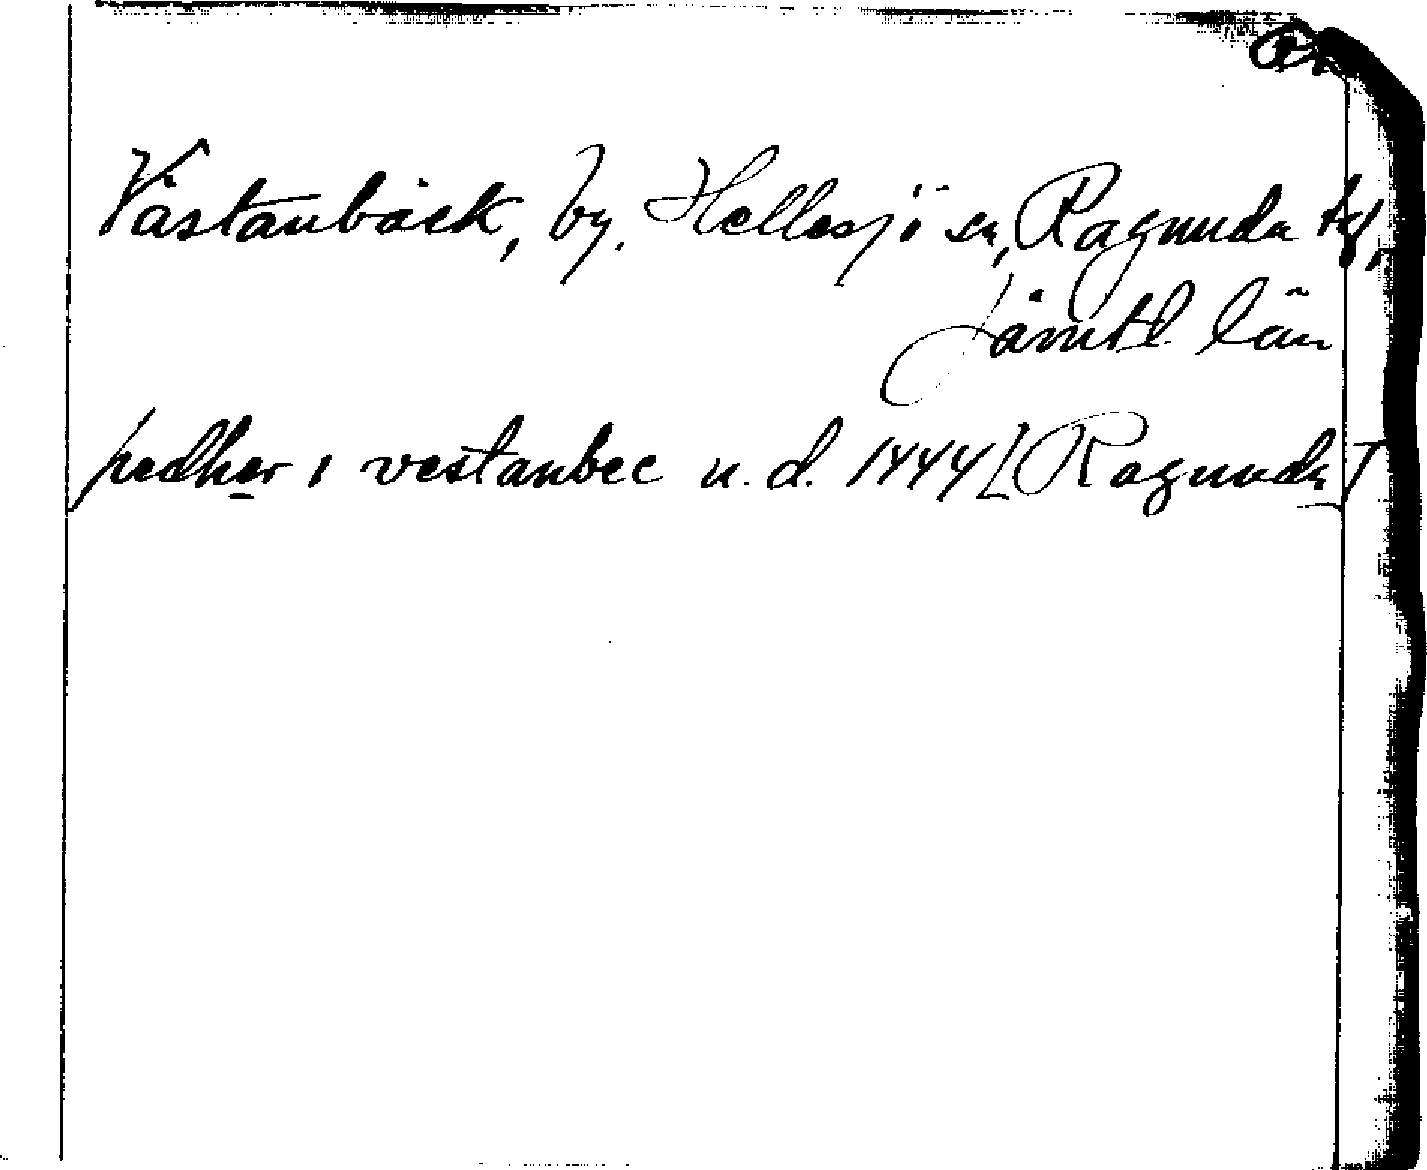 Västanbäck, by. Hellesjö sn, Ragunda tg,
Jämtl. län
pedher i vestanbec u. d. 1444 [Ragunda]